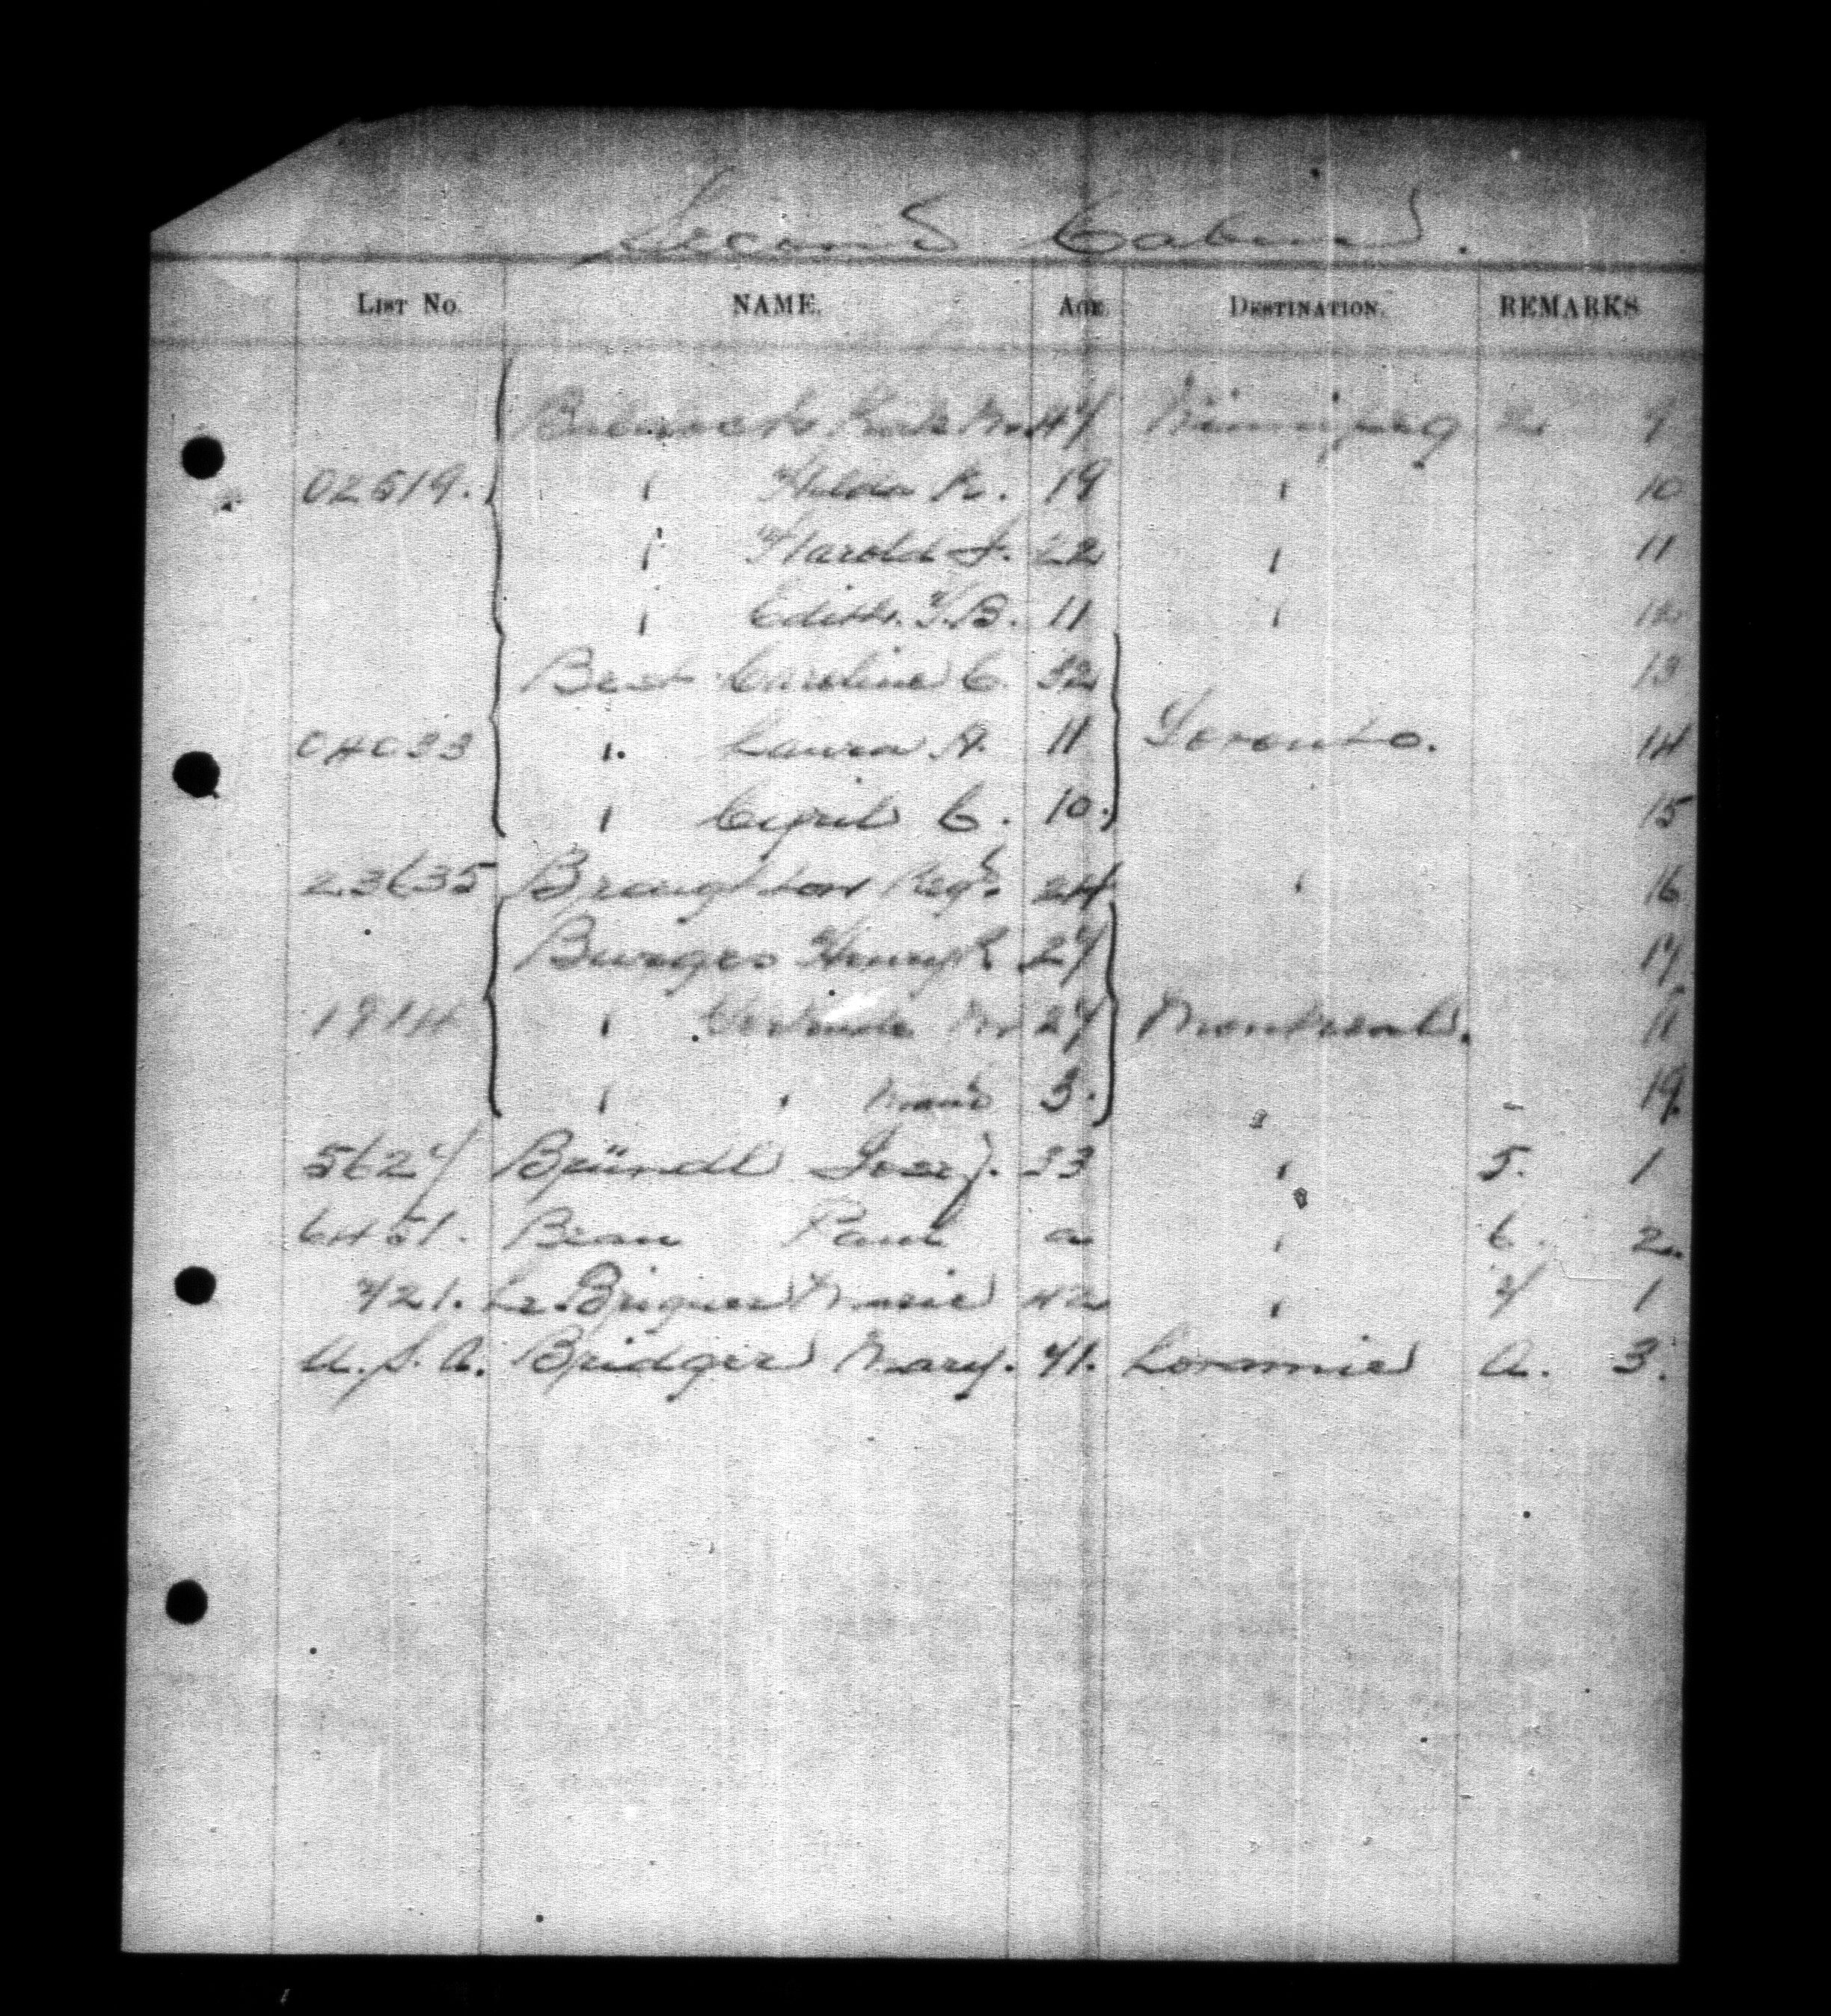 Second Cabin.
LIST NO. NAME. AGE. DESTINATION. REMARKS
Kate M. 47 Winnipeg 2
02519. " Hilda R. 19 " 10
" Harold J. 22 " 11
" Edith. T.B. 11 " 12
Best Caroline C. 32 13
04033 " Laura A. 11 Toronto. 14
" Cyril C. 10. 15
23635 Broughton Regd. 24 " 16
Burgess Henry R 27 17
" Gertrude M. 27 Montreal.
" " Maud 3. 19.
5627 Bründl Josef. 33 " 5. 1
6451. Bean Paul a " 6. 2.
721. Le Briquer Marie 42 " 7 1
U.S.A. Bridger Mary. 71. Loramie A. 3.